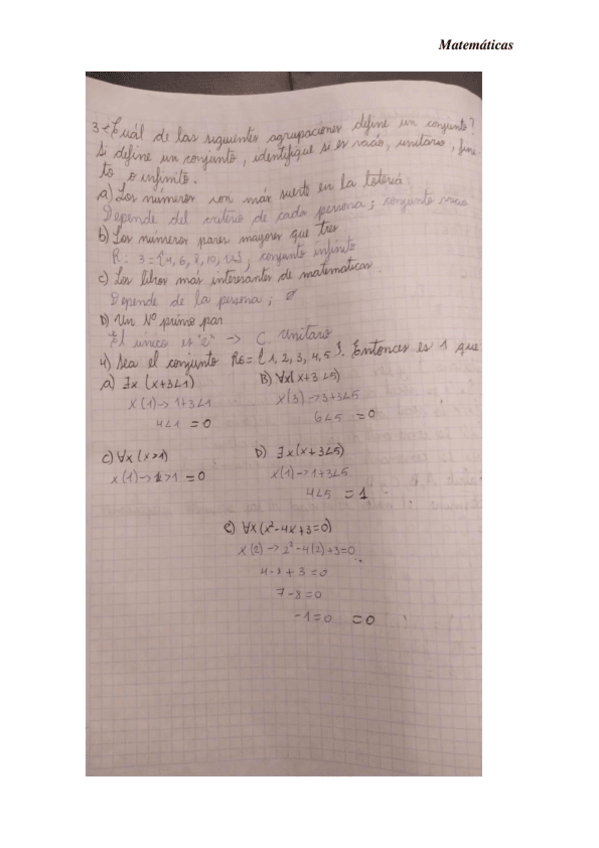 Matemáticas
3-¿Cuál de las siguientes agrupaciones define un conjunto?
Si define un conjunto, identifique si es vacío, unitario, fini-
to o infinito.
a) Los números con más suerte en la lotería:
Depende del criterio de cada persona; conjunto vacío
b) Los números pares mayores que tres
R: 3={4, 6, 8, 10, 12}, conjunto infinito
c) Los libros más interesantes de matemáticas.
Depende de la persona; ∅
D) Un Nº primo par
El único es "2" -> C. Unitario
4) Sea el conjunto Re={1, 2, 3, 4, 5}. Entonces es 1 que:
a) ∃x (x+3<1) B) ∀x(x+3<5)
x(1)->1+3<1 x(3)->3+3<5
4<1 =0 6<5 =0
C) ∀x (x>1) D) ∃x(x+3<5)
x(1)->1>1 =0 x(1)->1+3<5
4<5 =1
e) ∀x(x²-4x+3=0)
x(2)->2²-4(2)+3=0
4-8+3=0
7-8=0
-1=0 =0